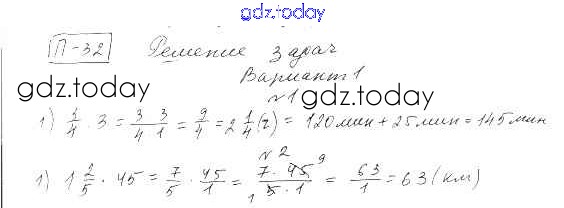 gdz.today
П-32 Решение задач
Вариант 1
gdz.today gdz.today
№1
1) 3/4 · 3 = 3/4 · 3/1 = 9/4 = 2 1/4 (г) = 120 мин + 25 мин = 145 мин
№2
1) 1 2/5 · 45 = 7/5 · 45/1 = 7 · 45 9/1 5 · 1 = 63/1 = 63 (км)